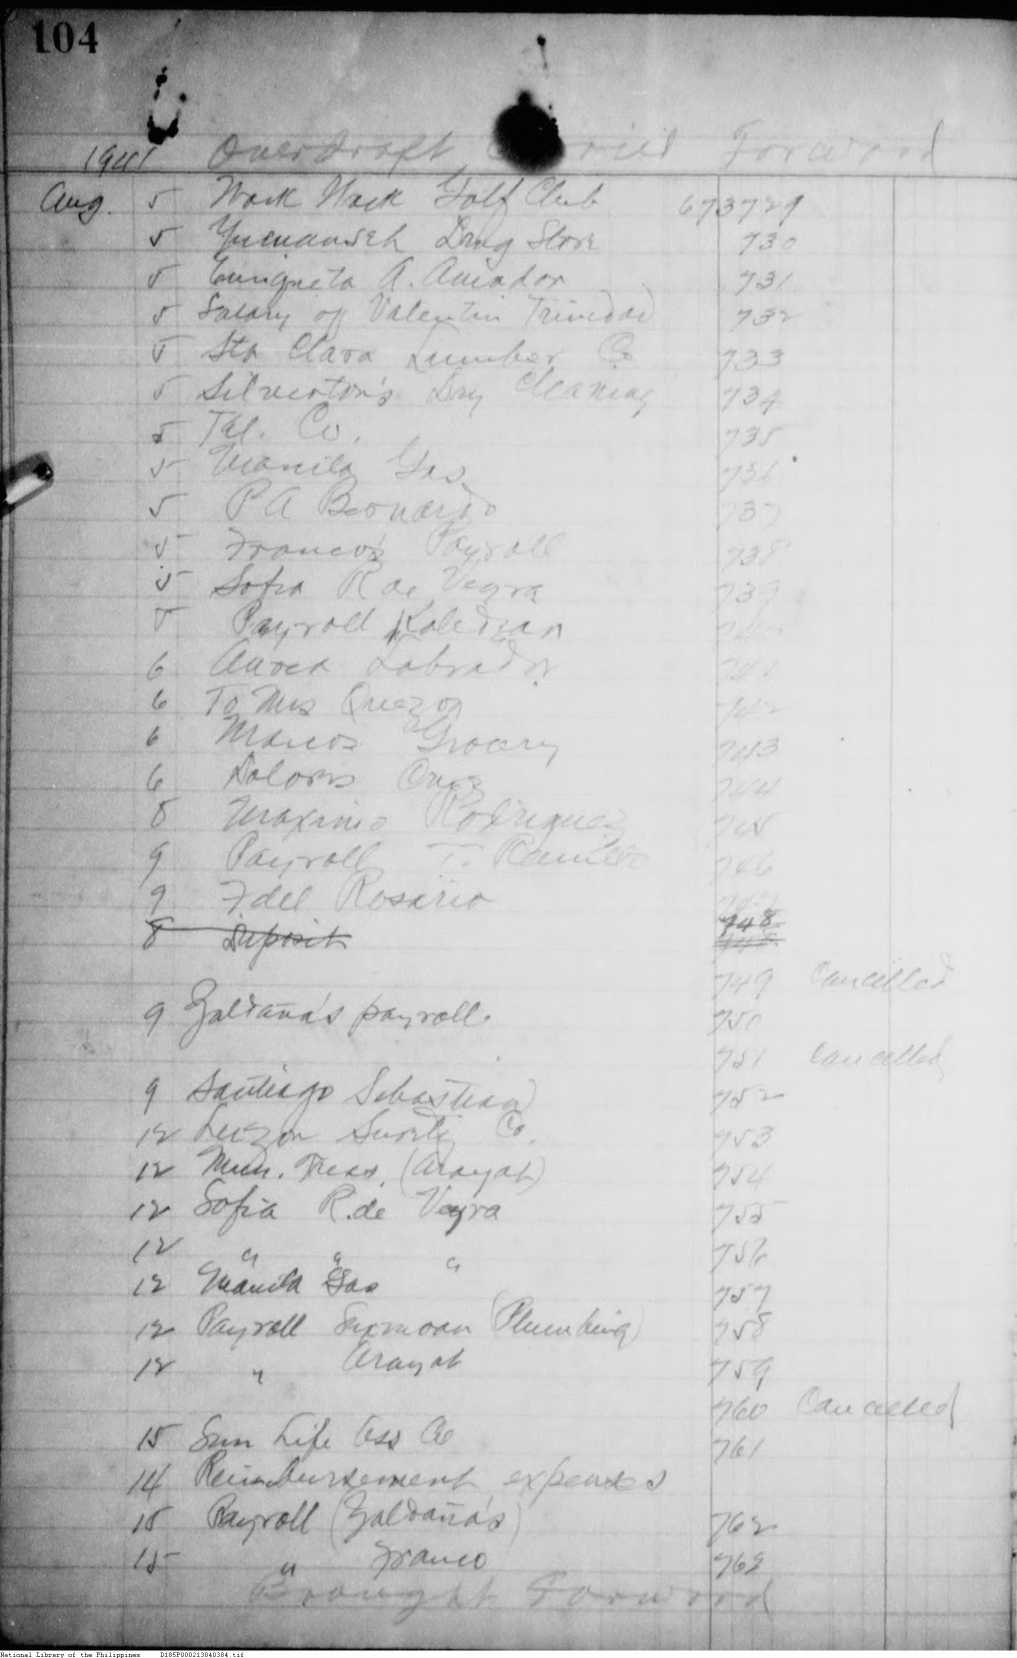 104
1941 Overdraft Carried Forword
Aug. 5 Wack Wack Golf Club 673729
5 Drug Store 730
5 Enriqueta A. Amador 731
5 Salary of Valentin Trinidad 732
5 Sta Clara Lumber Co 733
5 Silverton's Dry Cleaning 734
5 Tel. Co. 735
5 Manila Gas 736
5 P A Beonardo 737
5 Franco's Payroll 738
5 Sofia R de Veyra 739
5 Payroll
6 Aurea Labrador
6 To Mrs Quezon 742
6 Marcos Grocery 743
6 Dolores 744
8 Maximo Rodriguez 745
9 Payroll T. Ramirez 746
9 F del Rosario
8 Deposit 748
749 Cancelled
9 Zaldaña's payroll 750
751 Cancelled
9 Santiago Sebastian 752
12 Luzon Surety Co. 753
12 Mun. Treas. (Arayat) 754
12 Sofia R. de Veyra 755
12 " " " 756
12 Manila Gas 757
12 Payroll Sexmoan (Plumbing) 758
12 " Arayat 759
760 Cancelled
15 Sun Life Ass Co 761
14 Reimbursement expenses
15 Payroll (Zaldaña's) 762
15 " Franco 763
Brought Forword
National Library of the Philippines D185P000213040384.tif